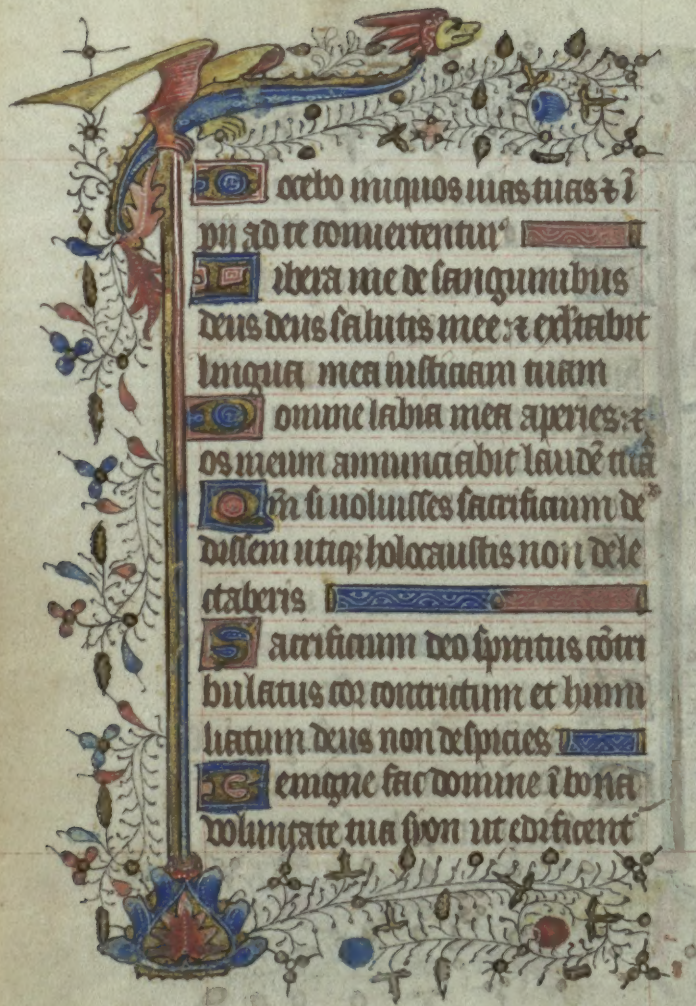 Docebo iniquos uias tuas ⁊ ī
pij ad te conuertentur
Libera me de sanguinibus
deus deus salutis mee: ⁊ exltabit
lingua mea iusticiam tuam
Domine labia mea aperies: ⁊
os meum annunciabit laudē tuā
Qm si uoluisses sacrificium de
dissem utiqꝫ holocaustis non dele
ctaberis
Sacrificium deo spiritus cōtri
bulatus cor contrictum et humi
liatum deus non despicies
Benigne fac domine ī bona
voluntate tua syon ut edificent